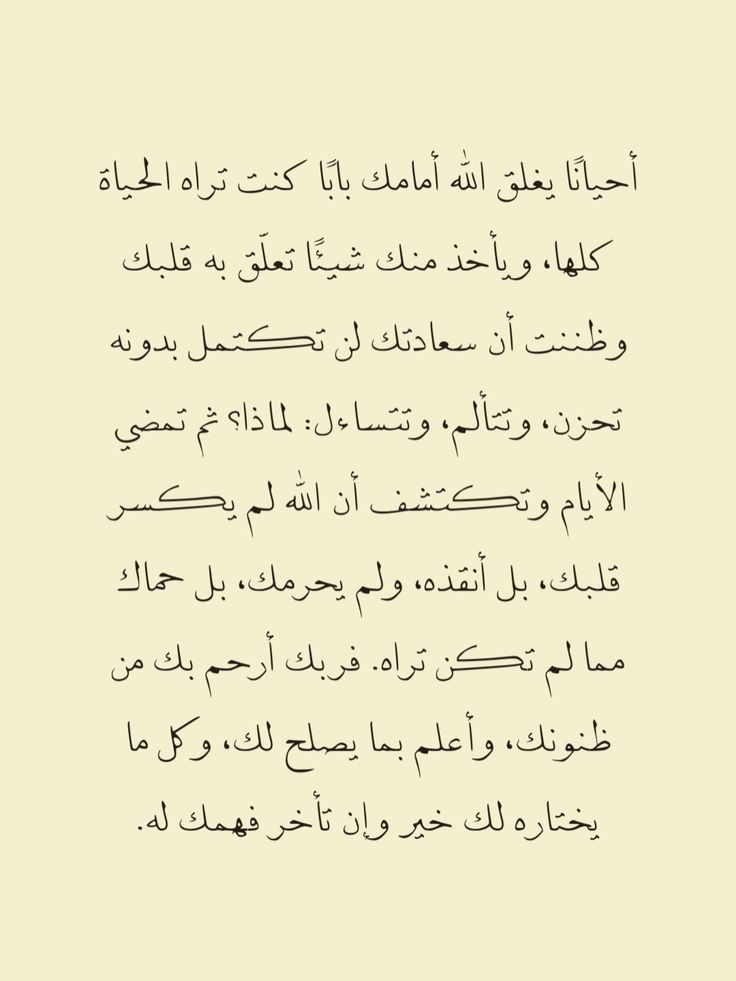 أحيانًا يغلق الله أمامك بابًا كنت تراه الحياة
كلها، ويأخذ منك شيئًا تعلّق به قلبك
وظننت أن سعادتك لن تكتمل بدونه
تحزن، وتتألم، وتتساءل: لماذا؟ ثم تمضي
الأيام وتكتشف أن الله لم يكسر
قلبك، بل أنقذه، ولم يحرمك، بل حماك
مما لم تكن تراه. فربك أرحم بك من
ظنونك، وأعلم بما يصلح لك، وكل ما
يختاره لك خير وإن تأخر فهمك له.